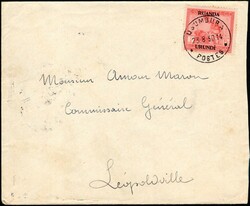 RUANDA
URUNDI
USUMBURA
POSTES
Monsieur Amour Maron
Commissaire Général
Léopoldville